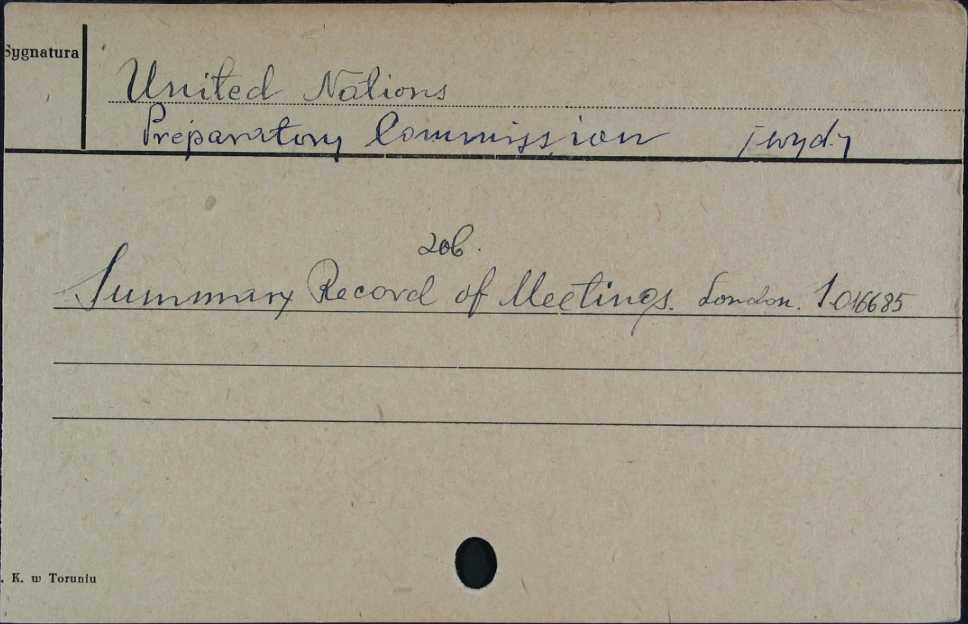 Sygnatura
United Nations
Preparatory Commission
zob.
Summary Record of Meetings. London. 1.016685
. K. w Toruniu